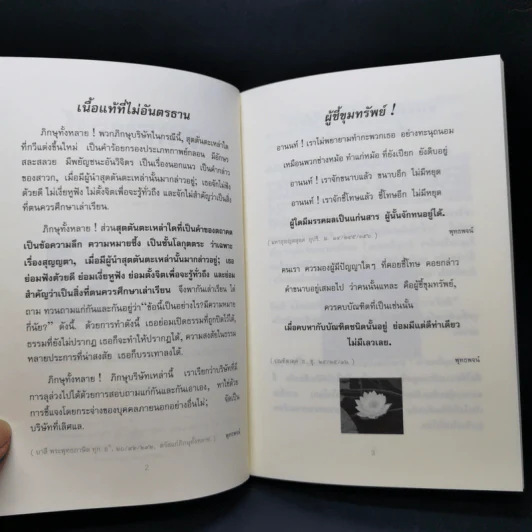 เนื้อแท้ที่ไม่อันตรธาน
ภิกษุทั้งหลาย ! พวกภิกษุบริษัทในกรณีนี้, สุตตันตะเหล่าใด
ที่กวีแต่งขึ้นใหม่ เป็นคำร้อยกรองประเภทกาพย์กลอน มีอักษร
สละสลวย มีพยัญชนะอันวิจิตร เป็นเรื่องนอกแนว เป็นคำกล่าว
ของสาวก, เมื่อมีผู้นำสุตตันตะเหล่านั้นมากล่าวอยู่; เธอจักไม่ฟัง
ด้วยดี ไม่เงี่ยหูฟัง ไม่ตั้งจิตเพื่อจะรู้ทั่วถึง และจักไม่สำคัญว่าเป็นสิ่ง
ที่ตนควรศึกษาเล่าเรียน.
ภิกษุทั้งหลาย ! ส่วนสุตตันตะเหล่าใดที่เป็นคำของตถาคต
เป็นข้อความลึก ความหมายซึ้ง เป็นชั้นโลกุตตระ ว่าเฉพาะ
เรื่องสุญญตา, เมื่อมีผู้นำสุตตันตะเหล่านั้นมากล่าวอยู่; เธอ
ย่อมฟังด้วยดี ย่อมเงี่ยหูฟัง ย่อมตั้งจิตเพื่อจะรู้ทั่วถึง และย่อม
สำคัญว่าเป็นสิ่งที่ตนควรศึกษาเล่าเรียน จึงพากันเล่าเรียน ไต่
ถาม ทวนถามแก่กันและกันอยู่ว่า “ข้อนี้เป็นอย่างไร? มีความหมาย
กี่นัย?” ดังนี้. ด้วยการทำดังนี้ เธอย่อมเปิดธรรมที่ถูกปิดไว้ได้,
ธรรมที่ยังไม่ปรากฏ เธอก็จะทำให้ปรากฏได้, ความสงสัยในธรรม
หลายประการที่น่าสงสัย เธอก็บรรเทาลงได้.
ภิกษุทั้งหลาย ! ภิกษุบริษัทเหล่านี้ เราเรียกว่าบริษัทที่มี
การลุล่วงไปได้ด้วยการสอบถามแก่กันและกันเอาเอง, หาใช่ด้วย
การชี้แจงโดยกระจ่างของบุคคลภายนอกอย่างอื่นไม่; จัดเป็น
บริษัทที่เลิศแล.
พุทธพจน์
2
ผู้ชี้ขุมทรัพย์ !
อานนท์ ! เราไม่พยายามทำกะพวกเธอ อย่างทะนุถนอม
เหมือนพวกช่างหม้อ ทำแก่หม้อ ที่ยังเปียก ยังดิบอยู่
อานนท์ ! เราจักขนาบแล้ว ขนาบอีก ไม่มีหยุด
อานนท์ ! เราจักชี้โทษแล้ว ชี้โทษอีก ไม่มีหยุด
ผู้ใดมีมรรคผลเป็นแก่นสาร ผู้นั้นจักทนอยู่ได้.
พุทธพจน์
คนเรา ควรมองผู้มีปัญญาใดๆ ที่คอยชี้โทษ คอยกล่าว
คำขนาบอยู่เสมอไป ว่าคนนั้นแหละ คือผู้ชี้ขุมทรัพย์,
ควรคบบัณฑิตที่เป็นเช่นนั้น
เมื่อคบหากับบัณฑิตชนิดนั้นอยู่ ย่อมมีแต่ดีท่าเดียว
ไม่มีเลวเลย.
พุทธพจน์